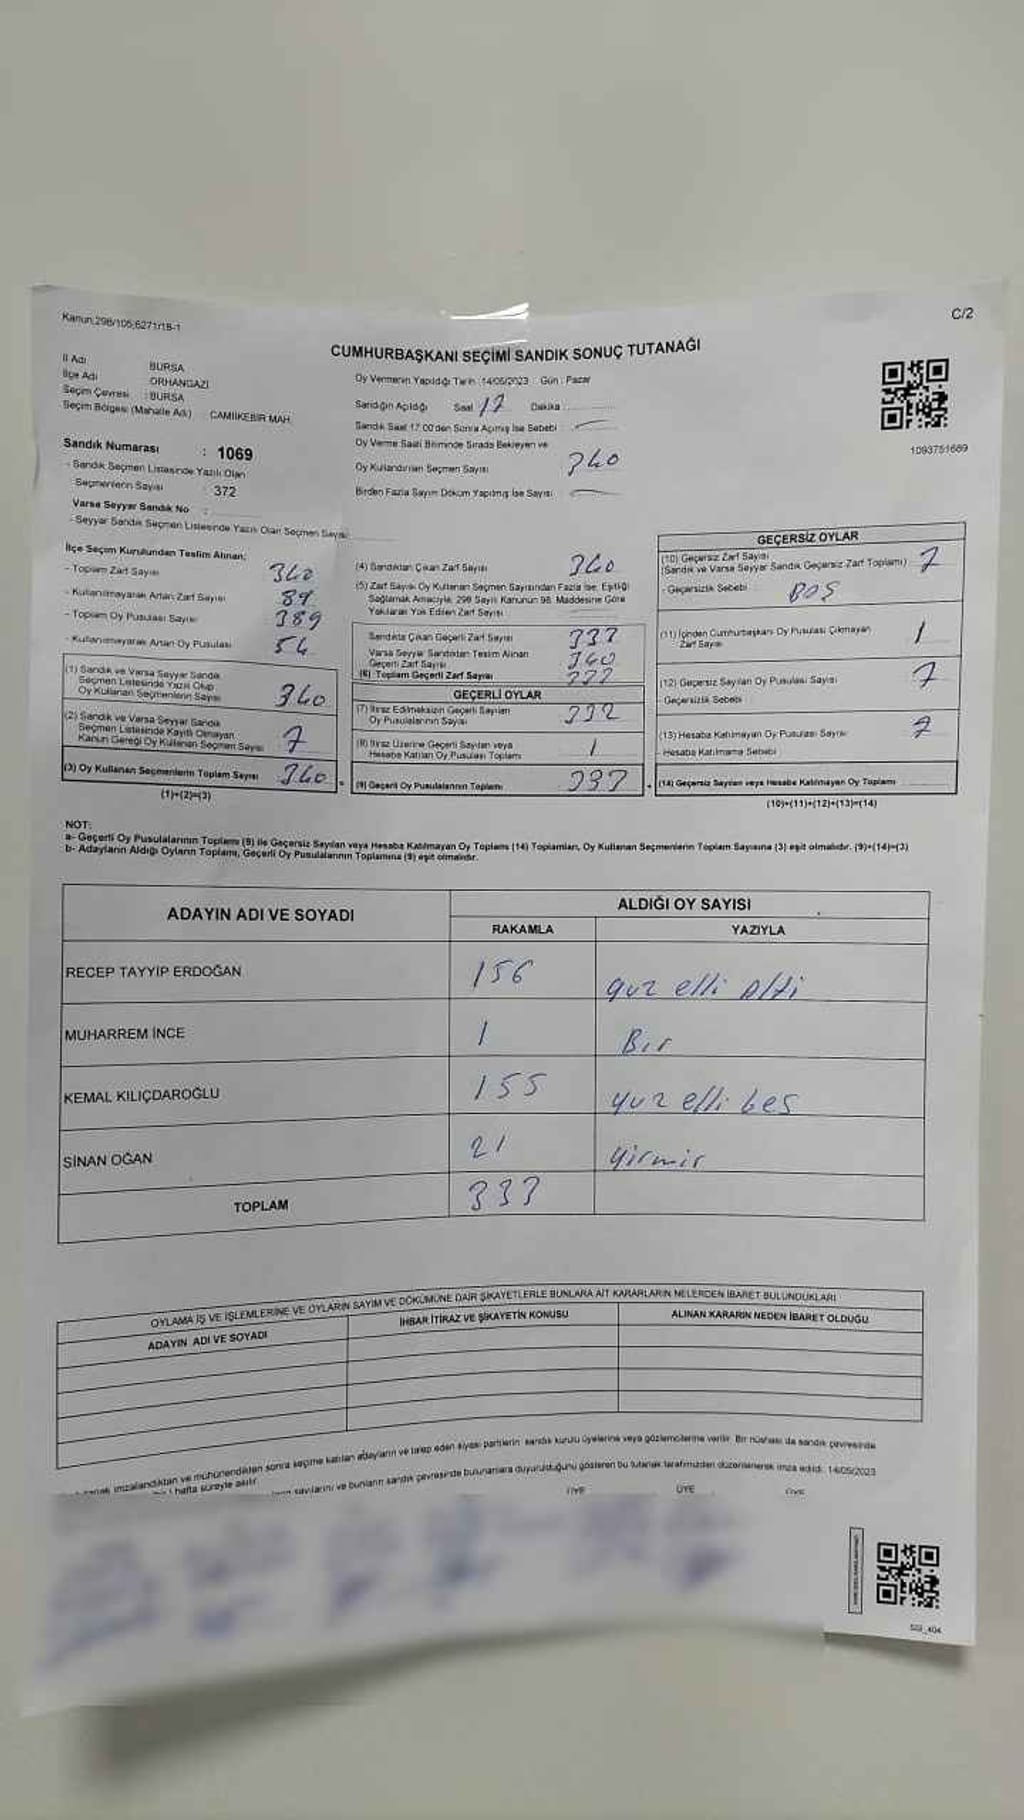 Kanun:298/105;6271/18-1
C/2
CUMHURBAŞKANI SEÇİMİ SANDIK SONUÇ TUTANAĞI
İl Adı BURSA
İlçe Adı ORHANGAZİ
Seçim Çevresi : BURSA
Seçim Bölgesi (Mahalle Adı) : CAMİİKEBİR MAH.
Sandık Numarası : 1069
- Sandık Seçmen Listesinde Yazılı Olan
Seçmenlerin Sayısı : 372
Varsa Seyyar Sandık No :
- Seyyar Sandık Seçmen Listesinde Yazılı Olan Seçmen Sayısı
Oy Vermenin Yapıldığı Tarih : 14/05/2023 Gün : Pazar
Sandığın Açıldığı Saat 17 Dakika :
Sandık Saat 17:00'den Sonra Açılmış İse Sebebi :
Oy Verme Saati Bitiminde Sırada Bekleyen ve
Oy Kullandırılan Seçmen Sayısı 340
Birden Fazla Sayım Döküm Yapılmış İse Sayısı
1093751669
İlçe Seçim Kurulundan Teslim Alınan:
- Toplam Zarf Sayısı 340
- Kullanılmayarak Artan Zarf Sayısı 89
- Toplam Oy Pusulası Sayısı 389
- Kullanılmayarak Artan Oy Pusulası 54
(1) Sandık ve Varsa Seyyar Sandık
Seçmen Listesinde Yazılı Olup
Oy Kullanan Seçmenlerin Sayısı 340
(2) Sandık ve Varsa Seyyar Sandık
Seçmen Listesinde Kayıtlı Olmayan
Kanun Gereği Oy Kullanan Seçmen Sayısı 7
(3) Oy Kullanan Seçmenlerin Toplam Sayısı 340
(1)+(2)=(3)
(4) Sandıktan Çıkan Zarf Sayısı 340
(5) Zarf Sayısı Oy Kullanan Seçmen Sayısından Fazla İse; Eşitliği
Sağlamak Amacıyla, 298 Sayılı Kanunun 98. Maddesine Göre
Yakılarak Yok Edilen Zarf Sayısı
Sandıkta Çıkan Geçerli Zarf Sayısı 333
Varsa Seyyar Sandıktan Teslim Alınan
Geçerli Zarf Sayısı 340
(6) Toplam Geçerli Zarf Sayısı 333
GEÇERLİ OYLAR
(7) İtiraz Edilmeksizin Geçerli Sayılan
Oy Pusulalarının Sayısı 332
(8) İtiraz Üzerine Geçerli Sayılan veya
Hesaba Katılan Oy Pusulası Toplamı 1
(9) Geçerli Oy Pusulalarının Toplamı 333
GEÇERSİZ OYLAR
(10) Geçersiz Zarf Sayısı
(Sandık ve Varsa Seyyar Sandık Geçersiz Zarf Toplamı) 7
- Geçersizlik Sebebi BOŞ
(11) İçinden Cumhurbaşkanı Oy Pusulası Çıkmayan
Zarf Sayısı 1
(12) Geçersiz Sayılan Oy Pusulası Sayısı 7
- Geçersizlik Sebebi
(13) Hesaba Katılmayan Oy Pusulası Sayısı 7
- Hesaba Katılmama Sebebi
(14) Geçersiz Sayılan veya Hesaba Katılmayan Oy Toplamı
(10)+(11)+(12)+(13)=(14)
NOT:
a- Geçerli Oy Pusulalarının Toplamı (9) ile Geçersiz Sayılan veya Hesaba Katılmayan Oy Toplamı (14) Toplamları, Oy Kullanan Seçmenlerin Toplam Sayısına (3) eşit olmalıdır. (9)+(14)=(3)
b- Adayların Aldığı Oyların Toplamı, Geçerli Oy Pusulalarının Toplamına (9) eşit olmalıdır.
ADAYIN ADI VE SOYADI
ALDIĞI OY SAYISI
RAKAMLA YAZIYLA
RECEP TAYYİP ERDOĞAN 156 yuz elli Altı
MUHARREM İNCE 1 Bır
KEMAL KILIÇDAROĞLU 155 yuz elli beş
SİNAN OĞAN 21 yirmir
TOPLAM 333
OYLAMA İŞ VE İŞLEMLERİNE VE OYLARIN SAYIM VE DÖKÜMÜNE DAİR ŞİKAYETLERLE BUNLARA AİT KARARLARIN NELERDEN İBARET BULUNDUKLARI
ADAYIN ADI VE SOYADI İHBAR İTİRAZ VE ŞİKAYETİN KONUSU ALINAN KARARIN NEDEN İBARET OLDUĞU
imzalandıktan ve mühürlendikten sonra seçime katılan adayların ve talep eden siyasi partilerin sandık kurulu üyelerine veya gözlemcilerine verilir. Bir nüshası da sandık çevresinde
hafta süreyle asılır.
sayılarını ve bunların sandık çevresinde bulunanlara duyurulduğunu gösteren bu tutanak tarafımızdan düzenlenerek imza edildi. 14/05/2023
ÜYE ÜYE ÜYE